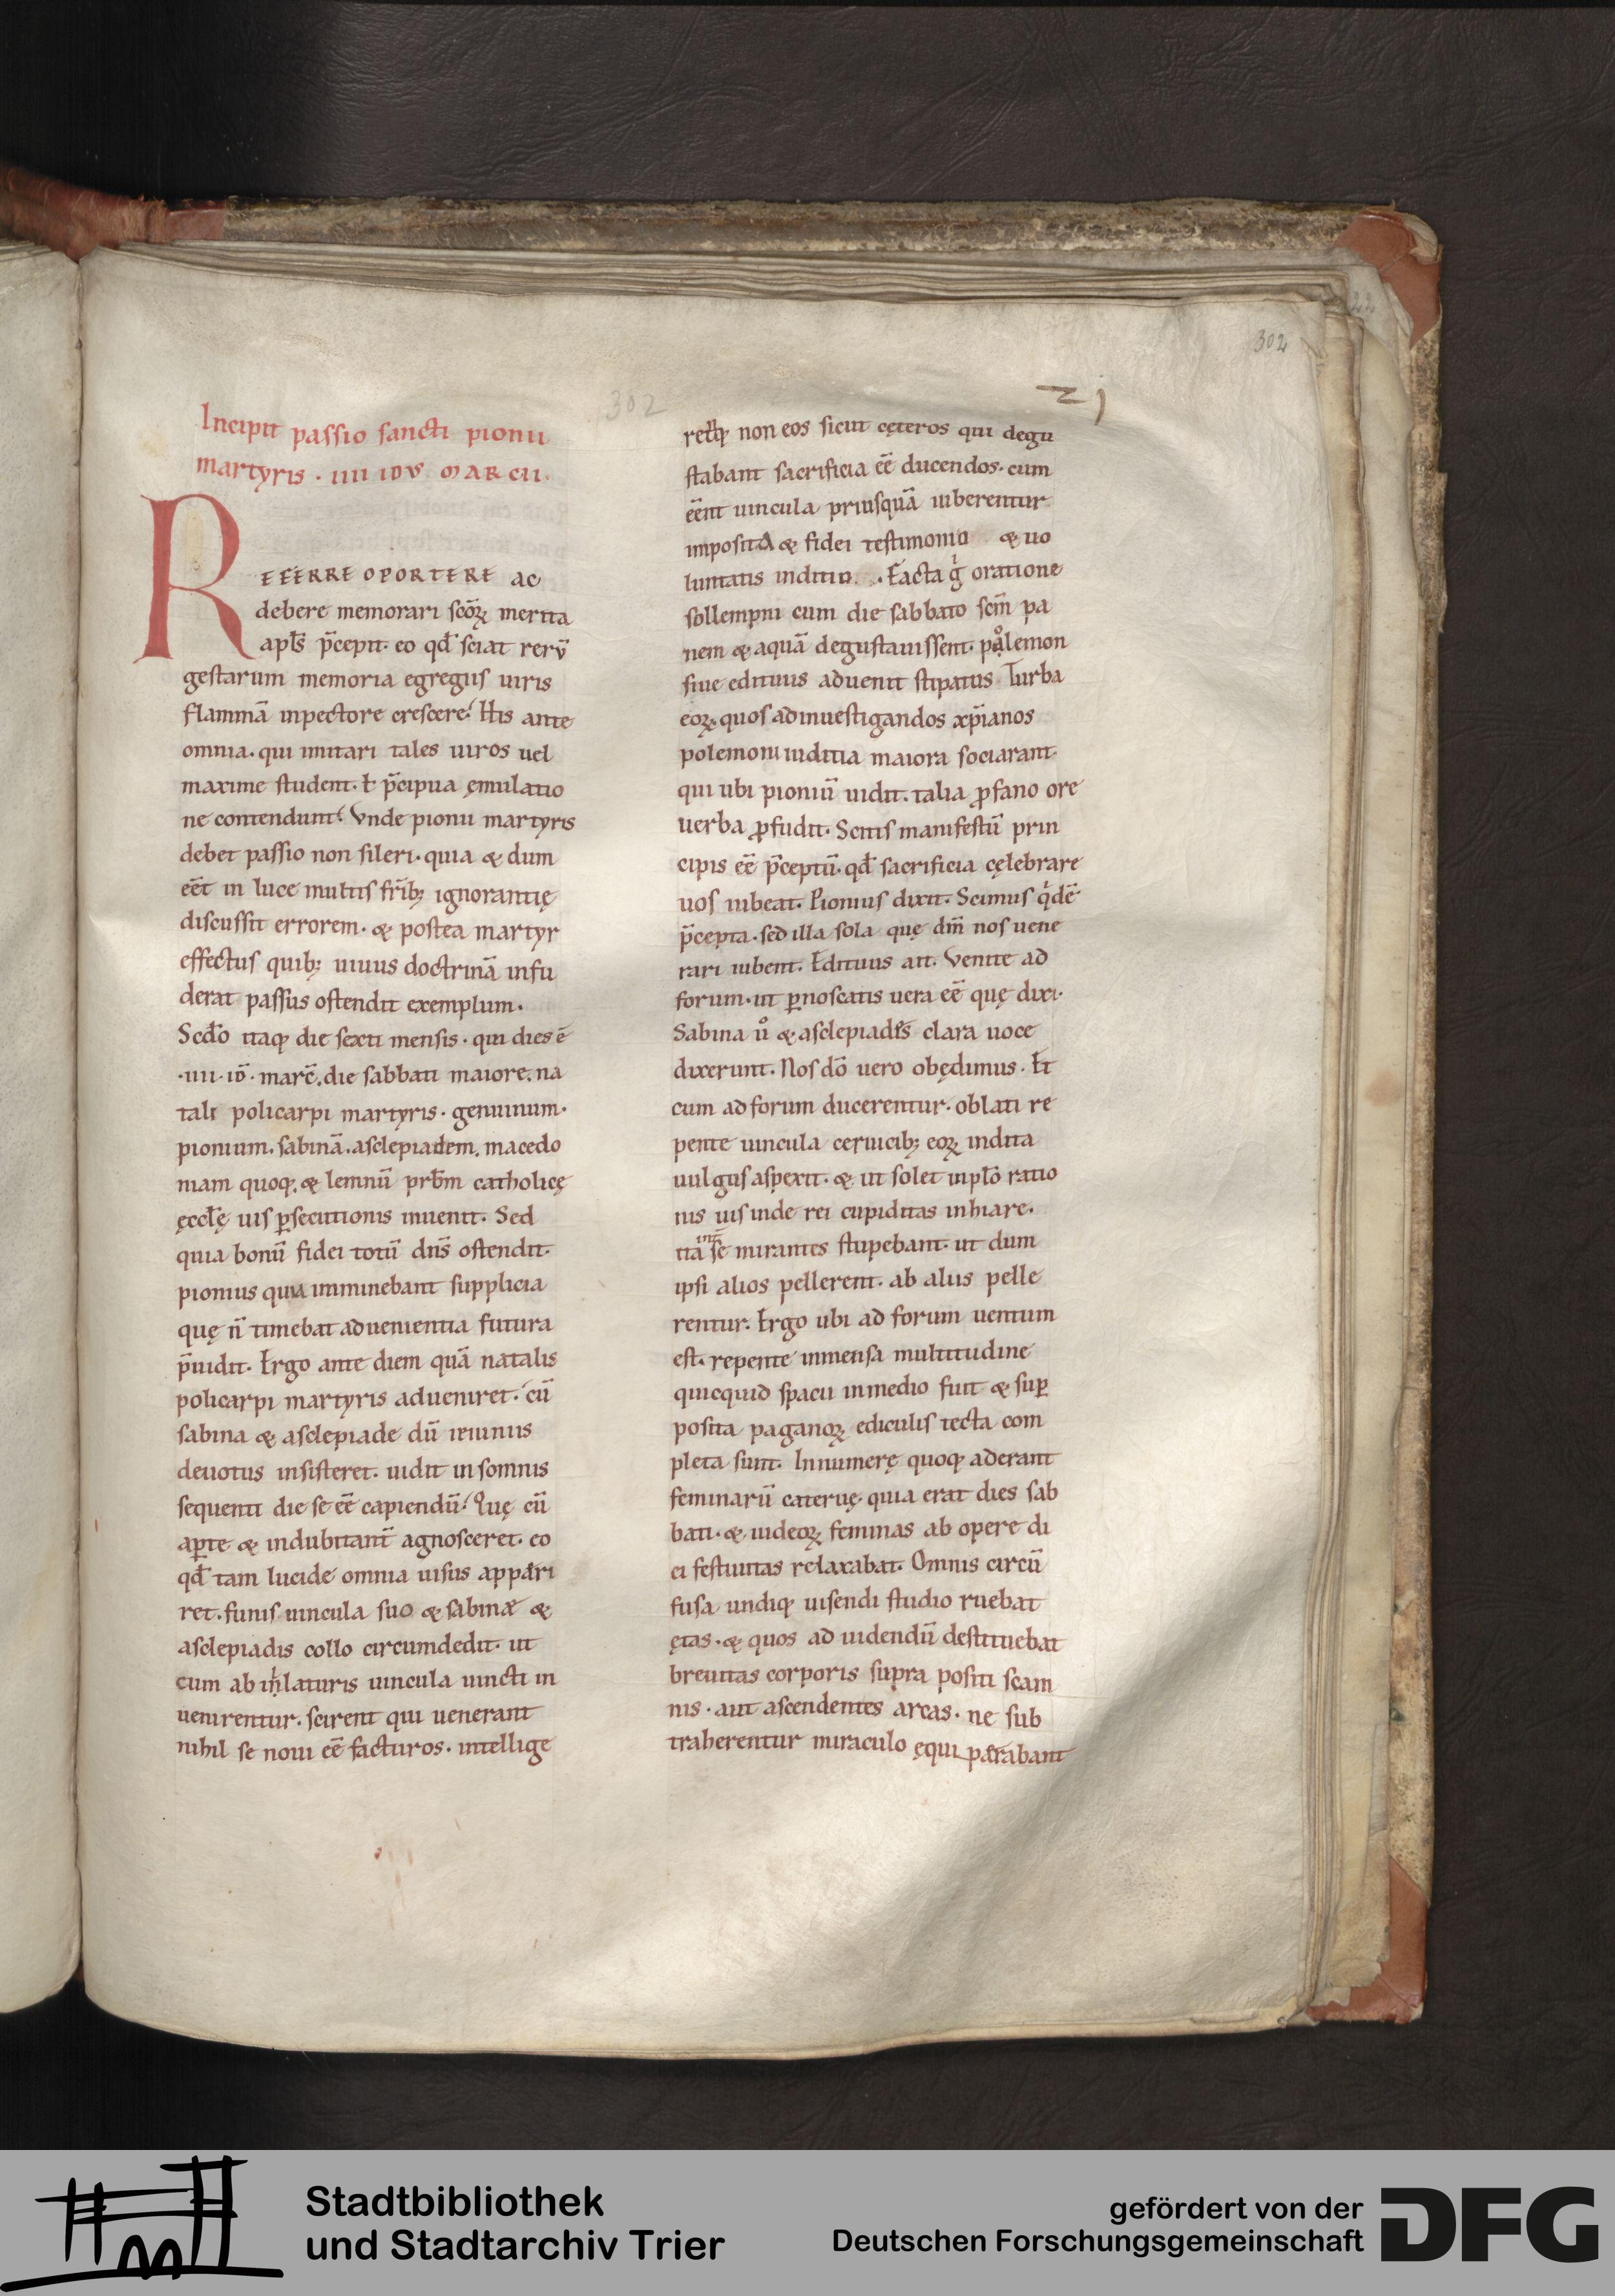 302
302
Incipit passio sancti pionii
martyris · iiii idus marcii·
REFERRE OPORTERE ac
debere memorari scōꝝ merita
apls̄ p̄cepit· eo qđ sciat rerū
gestarum memoria egregiis uiris
flammā inpectore crescere· His ante
omnia· qui imitari tales uiros uel
maxime student· ł p̄cipua ęmulatio
ne contendunt· Vnde pionii martyris
debet passio non sileri· quia & dum
eēt in luce multis frīb; ignorantię
discussit errorem· & postea martyr
effectus quib; uiuus doctrinā infu
derat passus ostendit exemplum·
Scđo itaq; die sexti mensis· qui dies ē
·iiii· id̄· marc̄· die sabbati maiore· na
tali policarpi martyris· genuinum·
pionium· sabinā· asclepiadem· macedo
niam quoq;· & lemnū prb̄m catholicę
ęccłę uis ꝑsecutionis inuenit· Sed
quia bonū fidei totū dn̄s ostendit·
pionius quia imminebant supplicia
quę n̄ timebat aduenientia futura
p̄uidit· Ergo ante diem quā natalis
policarpi martyris adueniret· cū
sabina & asclepiade dū ieiuniis
deuotus insisteret· uidit insomnis
sequenti die se eē capiendū· Quę cū
aꝑte & indubitant̄ agnosceret· eo
qđ tam lucide omnia uisus appari
ret· funis uincula suo & sabinæ &
asclepiadis collo circumdedit· ut
cum ab iħlaturis uincula uincti in
uenirentur· scirent qui uenerant
nihil se noui eē facturos· intellige
rentq; non eos sicut cęteros qui degu
stabant sacrificia eē ducendos· cum
eēnt uincula priusquā iuberentur
imposita & fidei testimonio & uo
luntatis inditio· Facta g̊ oratione
sollempni cum die sabbato scm̄ pa
nem & aquā degustauissent· polemon
siue edituus aduenit stipatus Turba
eoꝝ· quos adinuestigandos xp̄ianos
polemoni iuditia maiora sociarant·
qui ubi pioniū uidit· talia ꝓfano ore
uerba ꝓfudit· Scitis manifestū prin
cipis eē p̄ceptū· qđ sacrificia cęlebrare
uos iubeat· Pionius dixit· Scimus q̇dē
p̄cepta· sed illa sola quę dm̄ nos uene
rari iubent· Edituus ait· Venite ad
forum· ut ꝑnoscatis uera eē quę dixi·
Sabina u̇ & asclepiades clara uoce
dixerunt· Nos dō uero obędimus· Et
cum ad forum ducerentur· oblati re
pente uincula ceruicib; eoꝝ indita
uulgus aspexit· & ut solet inpłō ratio
nis uis inde rei cupiditas inhiare·
itā int̄ se mirantes stupebant· ut dum
ipsi alios pellerent· ab aliis pelle
rentur· Ergo ubi ad forum uentum
est· repente inmensa multitudine
quicquid spacii inmedio fuit & suꝑ
posita paganoꝝ ediculis tecta com
pleta sunt· Innumerę quoq; aderant
feminarū cateruę· quia erat dies sab
bati· & iudeoꝝ feminas ab opere di
ei festiuitas relaxabat· Omnis circū
fusa undiq; uisendi studio ruebat
ętas· & quos ad uidendū destituebat
breuitas corporis supra positi scam
nis· aut ascendentes arcas· ne sub
traherentur miraculo ęqui parabant
Stadtbibliothek
und Stadtarchiv Trier
gefördert von der
Deutschen Forschungsgemeinschaft
DFG